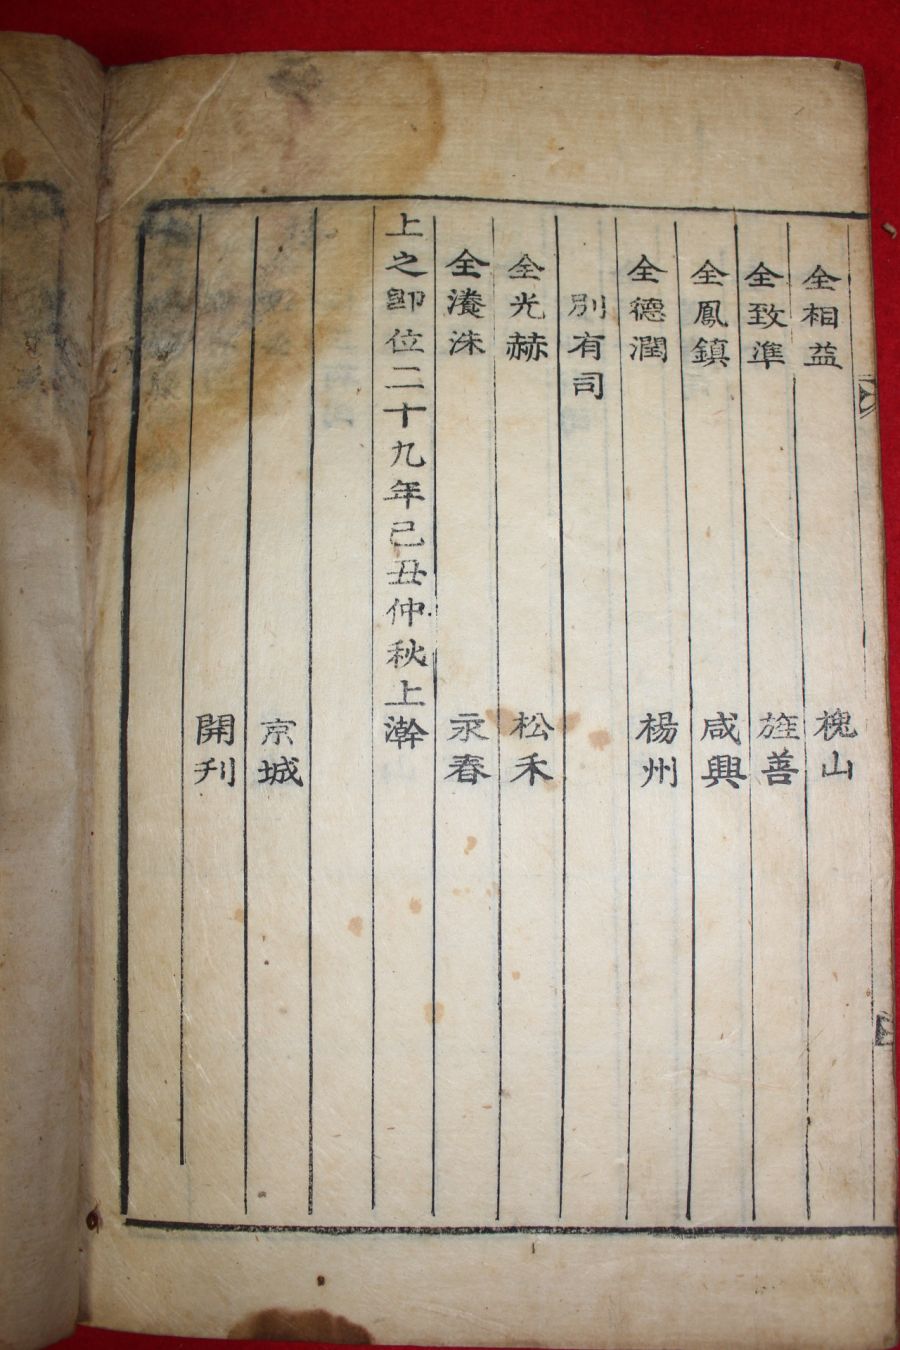 全相益 槐山
全致準 旌善
全鳳鎮 咸興
全德潤 楊州
別有司
全光赫 松禾
全瀁洙 永春
上之卽位二十九年己丑仲秋上澣
京城
開刊